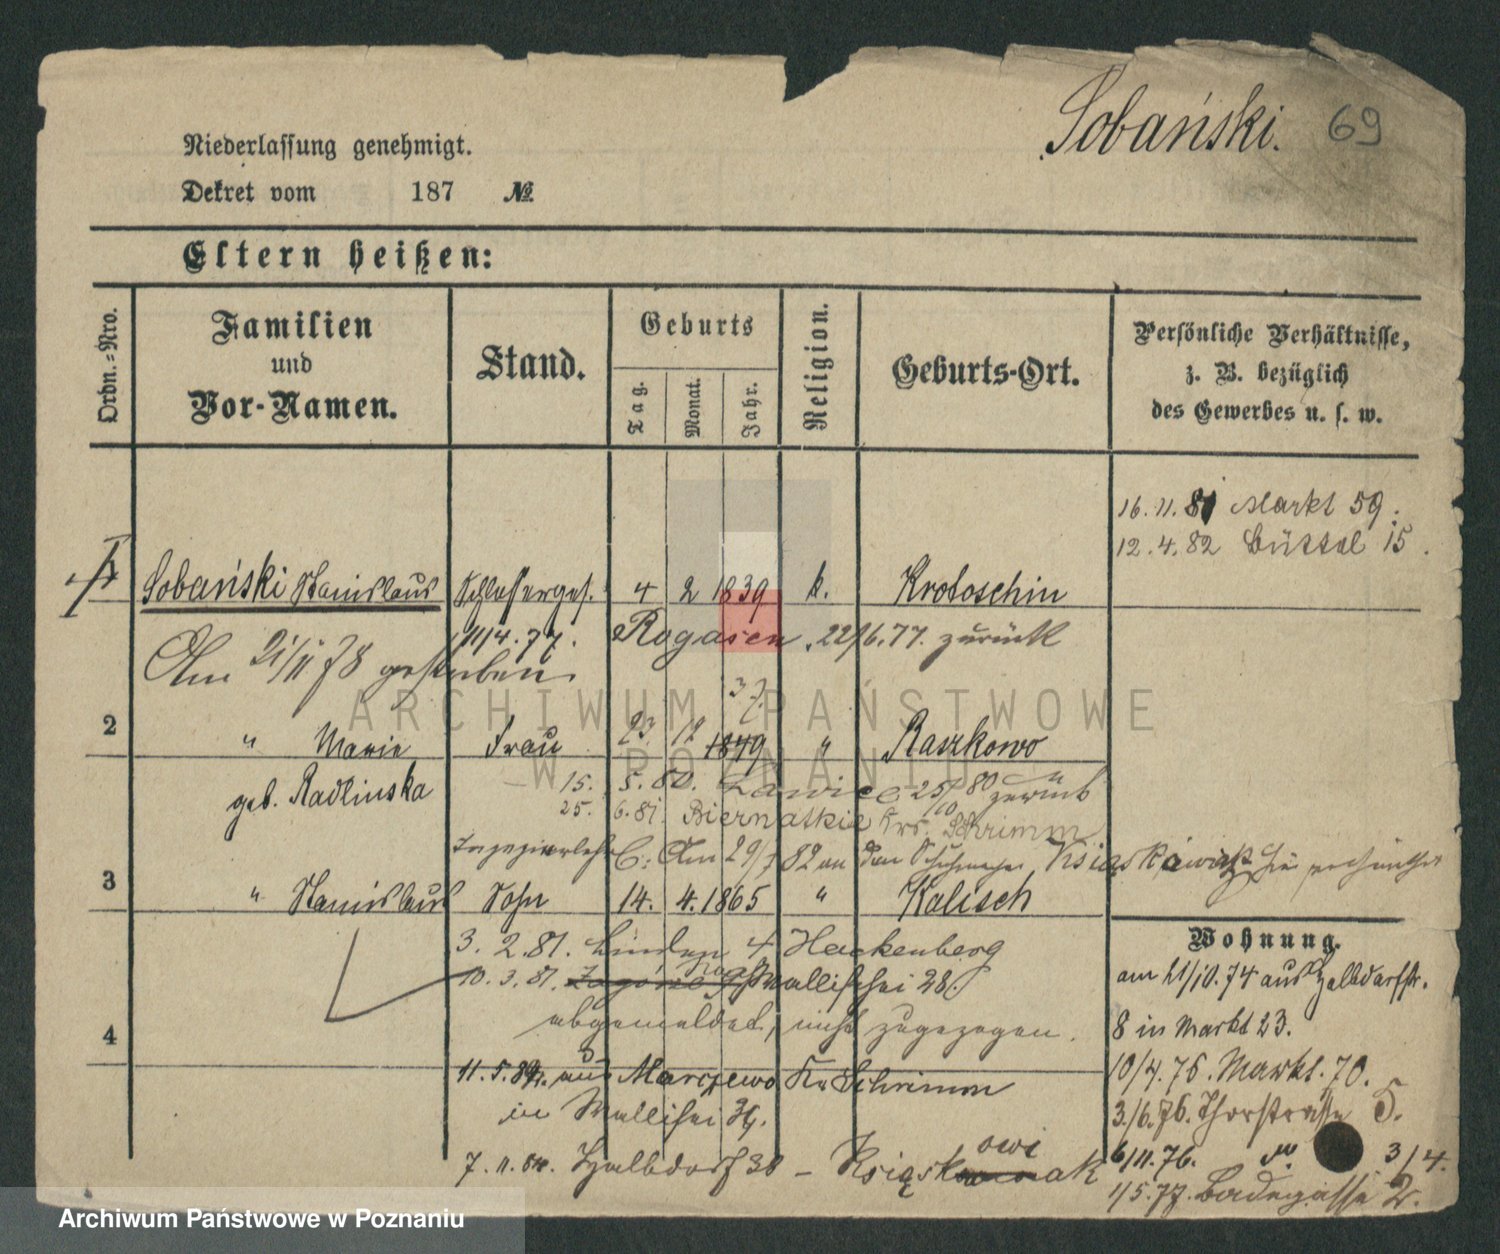 Sobański. 69
Niederlassung genehmigt.
Dekret vom 187 №
Eltern heißen:
Ordn.=Nro.
Familien
und
Vor-Namen.
Stand.
Geburts
Tag.
Monat.
Jahr.
Religion.
Geburts-Ort.
Persönliche Verhältnisse,
z. B. bezüglich
des Gewerbes u. s. w.
16.11.81 Markt 59.
12.4.82 Büttel 15.
1 Sobański Stanislaus Schlosserges. 4 2 1839 k. Krotoschin
11/4.77. Rogasen 22/6.77. zurück
Am 21/11 78 gestorben
37.
2 " Marie Frau 23 12 1849 " Raszkowo
geb. Radlinska 15. 5. 80. 80 zurück
25. 6.81. Biernatkie Krs. Schrimm
Am 29/7 82 an den Schuhmacher
3 " Stanislaus Sohn 14. 4. 1865 " Kalisch
3. 2. 81. Linden 4 Hackenberg
10. 3. 81. Wallischei 28.
abgemeldet, nicht zugezogen.
4
11.5.84. aus Marzewo Kr Schrimm
in Wallischei
7. 11. 84. Halbdorf 38 – Księsk owi ak
Wohnung.
am 21/10.74 aus Halbdorfstr.
8 in Markt 23.
10/4.76. Markt. 70.
3./6.76. Thorstraße 5.
6/11.76. 3/4.
1/5.77. Badegasse 2.
ARCHIWUM PAŃSTWOWE
W POZNANIU
Archiwum Państwowe w Poznaniu